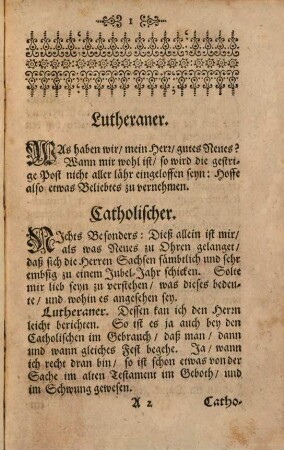 1
Lutheraner.
WAs haben wir/ mein Herr/ gutes Neues?
Wann mir wohl ist/ so wird die gestri-
ge Post nicht aller lähr eingeloffen seyn: Hoffe
also etwas Beliebtes zu vernehmen.
Catholischer.
NIchts Besonders: Dieß allein ist mir/
als was Neues zu Ohren gelanget/
daß sich die Herren Sachsen sämbtlich und sehr
embsig zu einem Jubel-Jahr schicken. Solte
mir lieb seyn zu verstehen/ was dieses bedeu-
te/ und wohin es angesehen sey.
Lutheraner. Dessen kan ich den Herrn
leicht berichten. So ist es ja auch bey den
Catholischen im Gebrauch/ daß man/ dann
und wann gleiches Fest begehe. Ja/ wann
ich recht dran bin/ so ist schon etwas von der
Sache im alten Testament im Geboth/ und
im Schwung gewesen.
A 2 Catho-